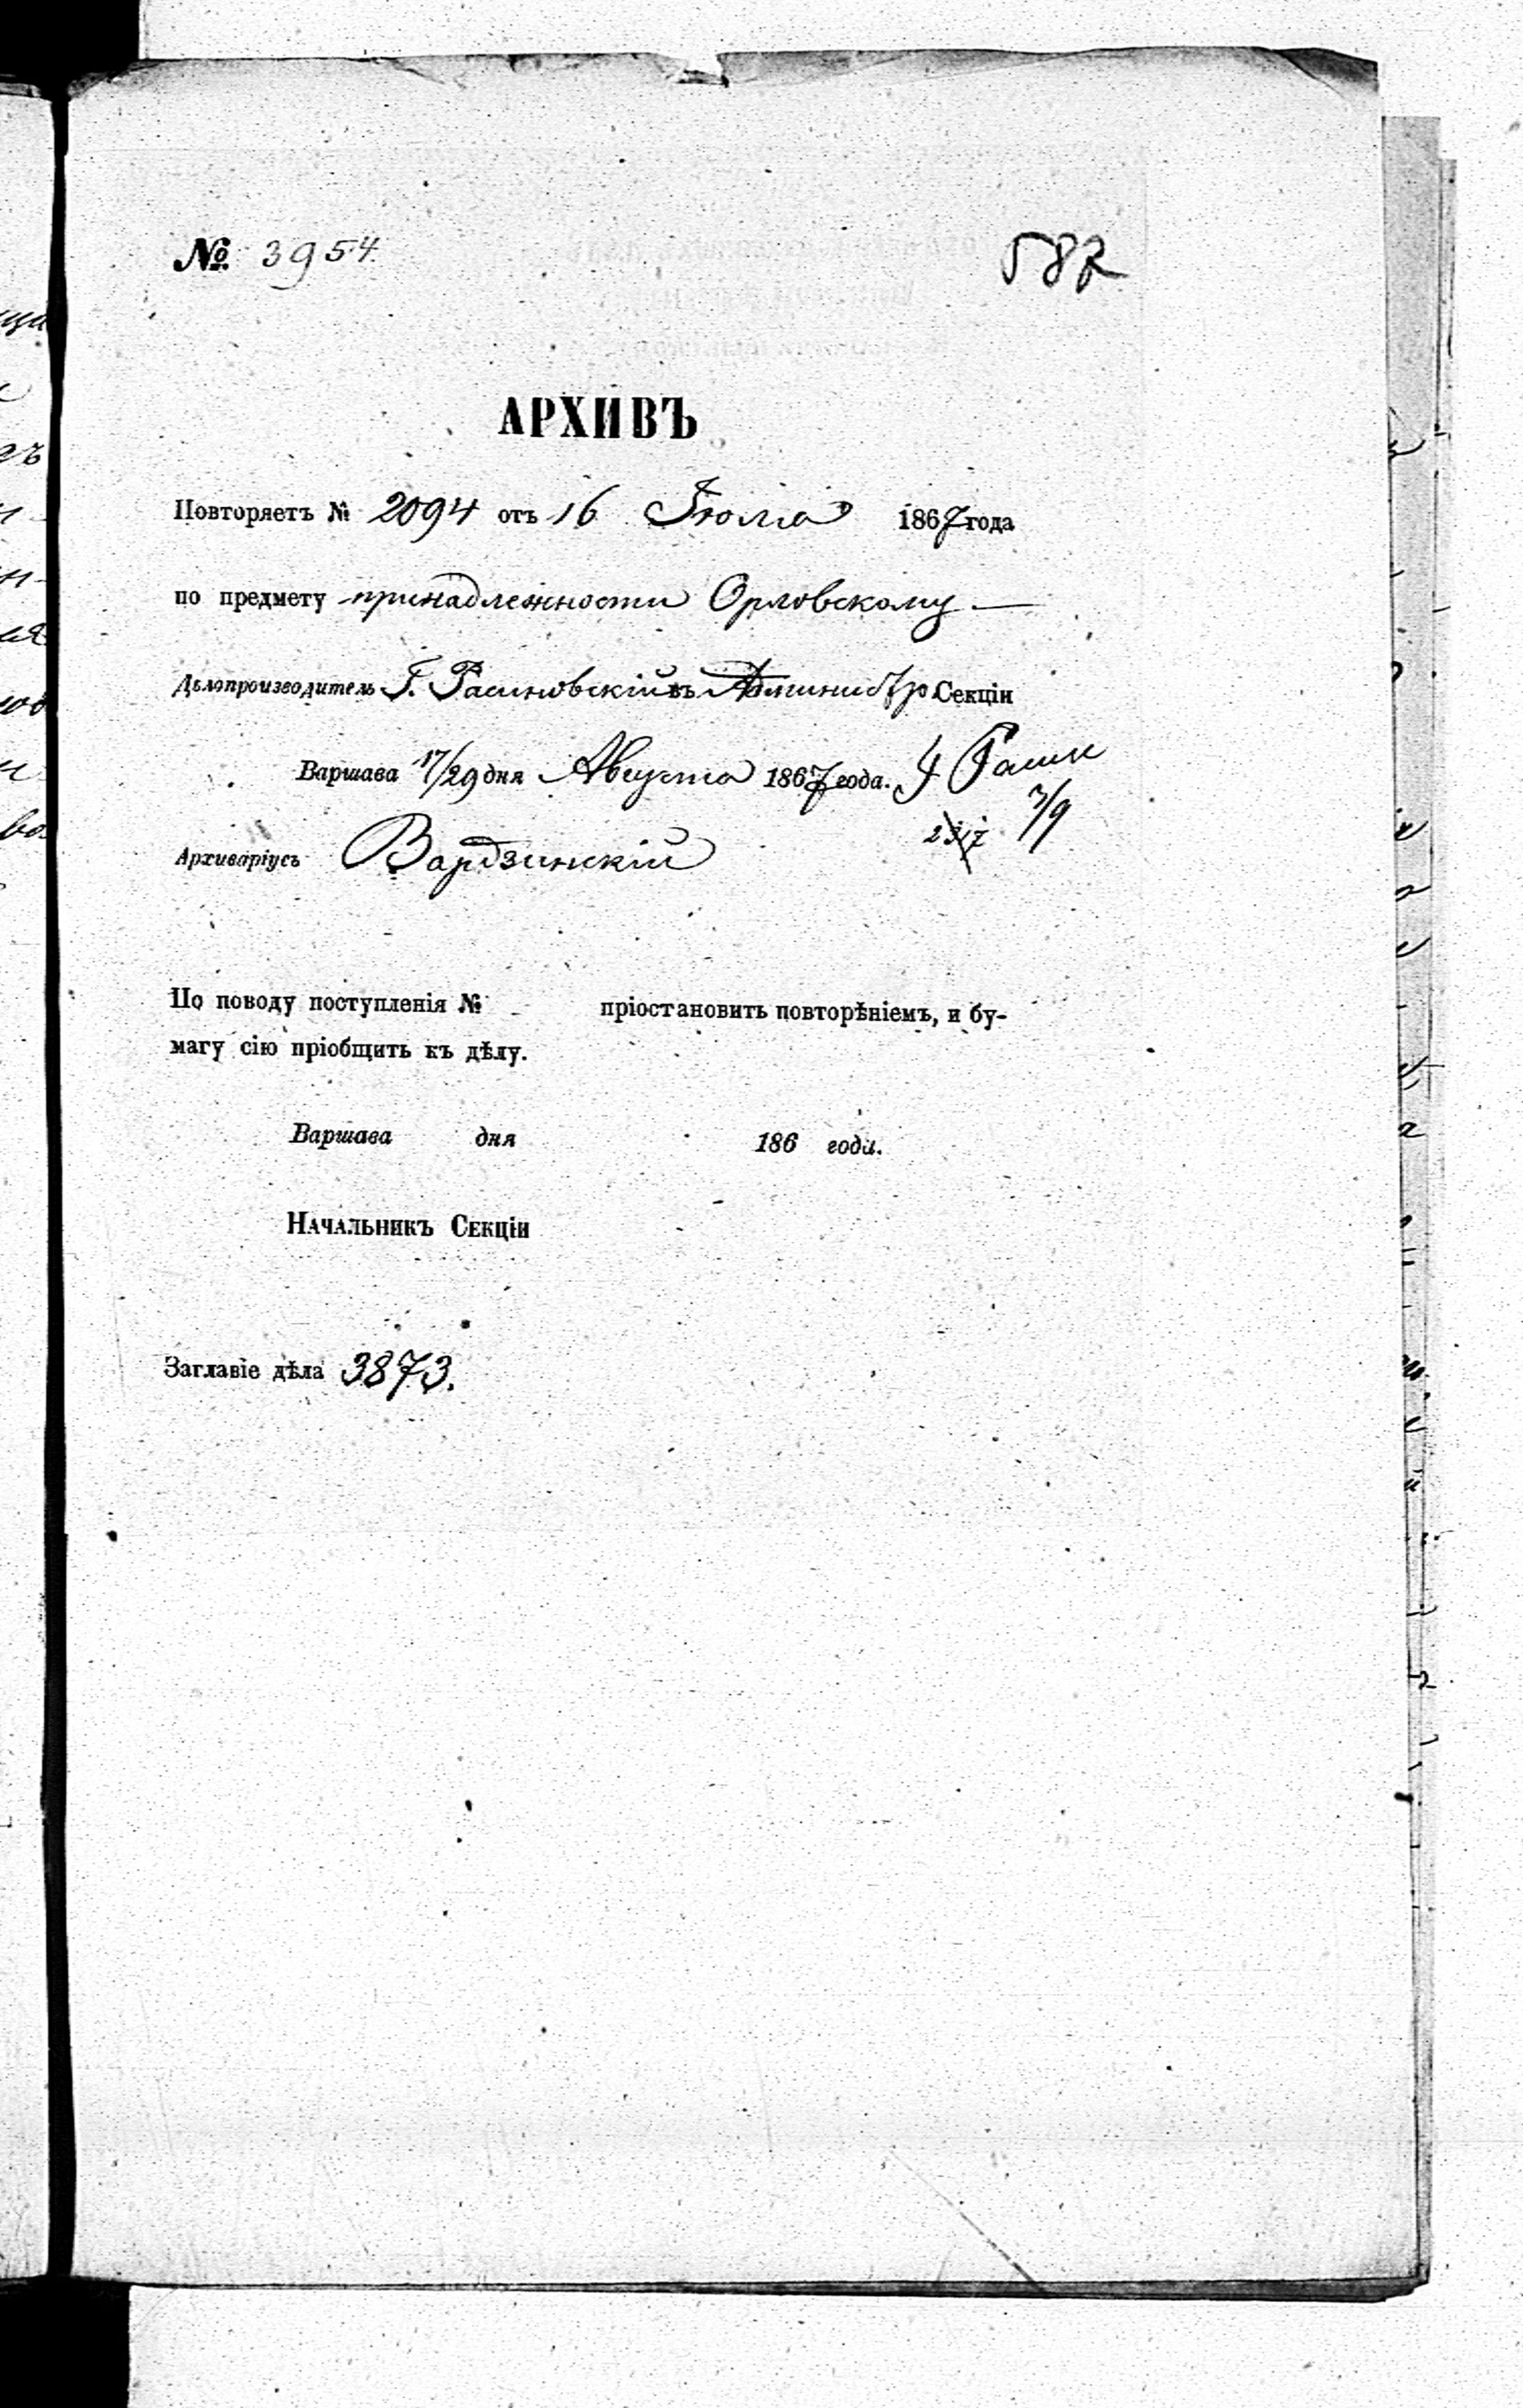 № 3954
582
АРХИВЪ
Повторяетъ № 2094 отъ 16 Іюля 1867 года
по предмету принадлежности Орловскому —
Дѣлопроизводитель Г. Расиновскій въ Администр. Секціи
Варшава 17/29 дня Августа 1867 года.
3/9
Архиваріусъ Вардзинскій
По поводу поступленія № пріостановить повторѣніемъ, и бу-
магу сію пріобщить къ дѣлу.
Варшава дня 186 года.
Начальникъ Секціи
Заглавіе дѣла 3873.